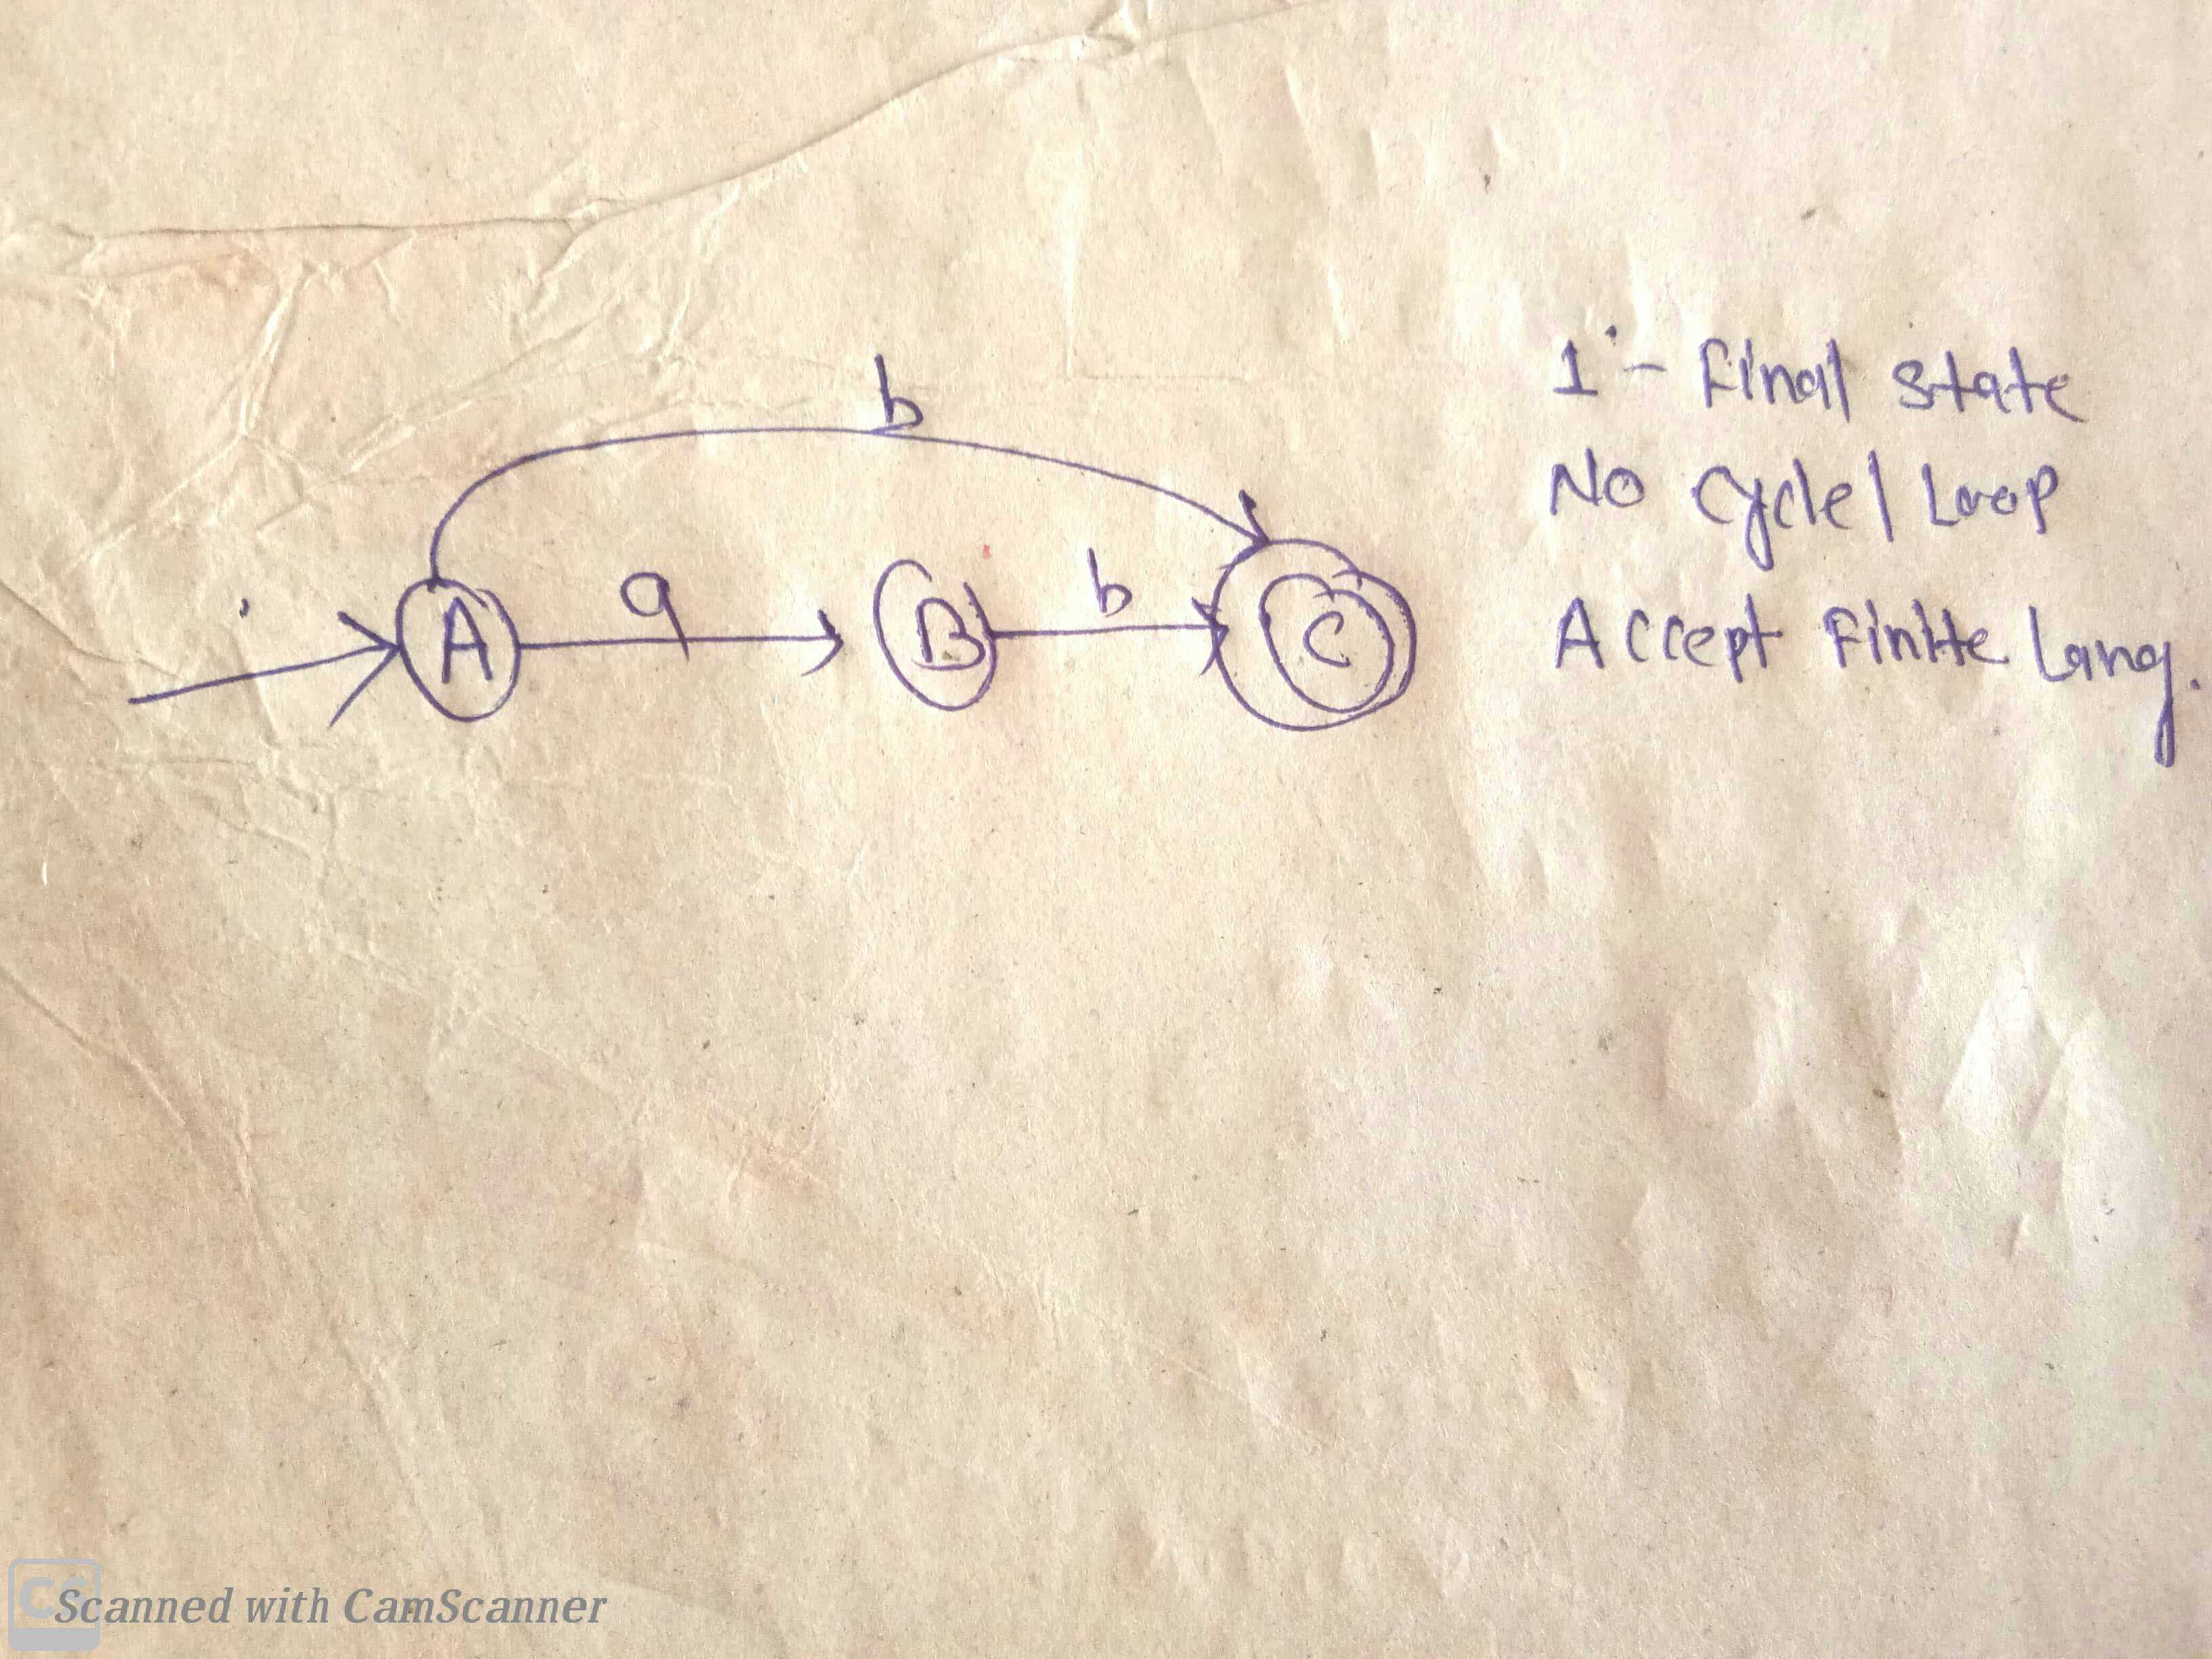 b
A a B b C
1 - Final state
No cycle/ Loop
Accept Finite Lang.
CS Scanned with CamScanner